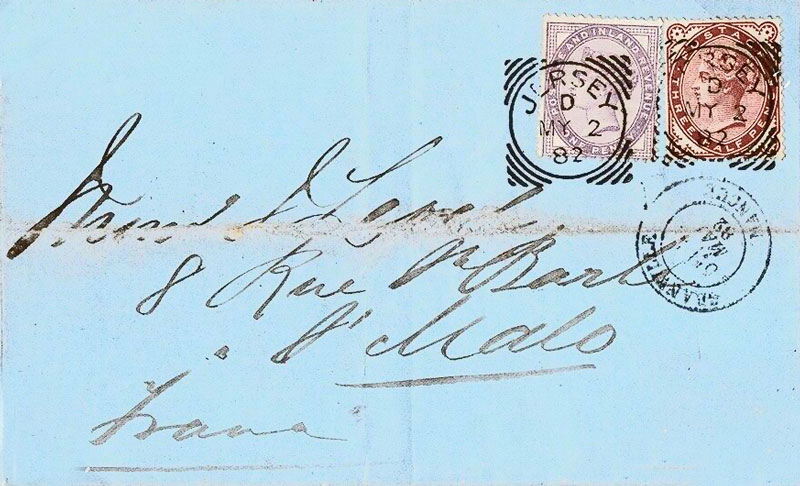 POSTAGE AND INLAND REVENUE
ONE PENNY
POSTAGE
THREE HALF PENCE
JERSEY
D
MY 2
82
JERSEY
D
MY 2
82
GRANVILLE
MANCHE
MAI
82
8 Rue St Barb
St Malo
France